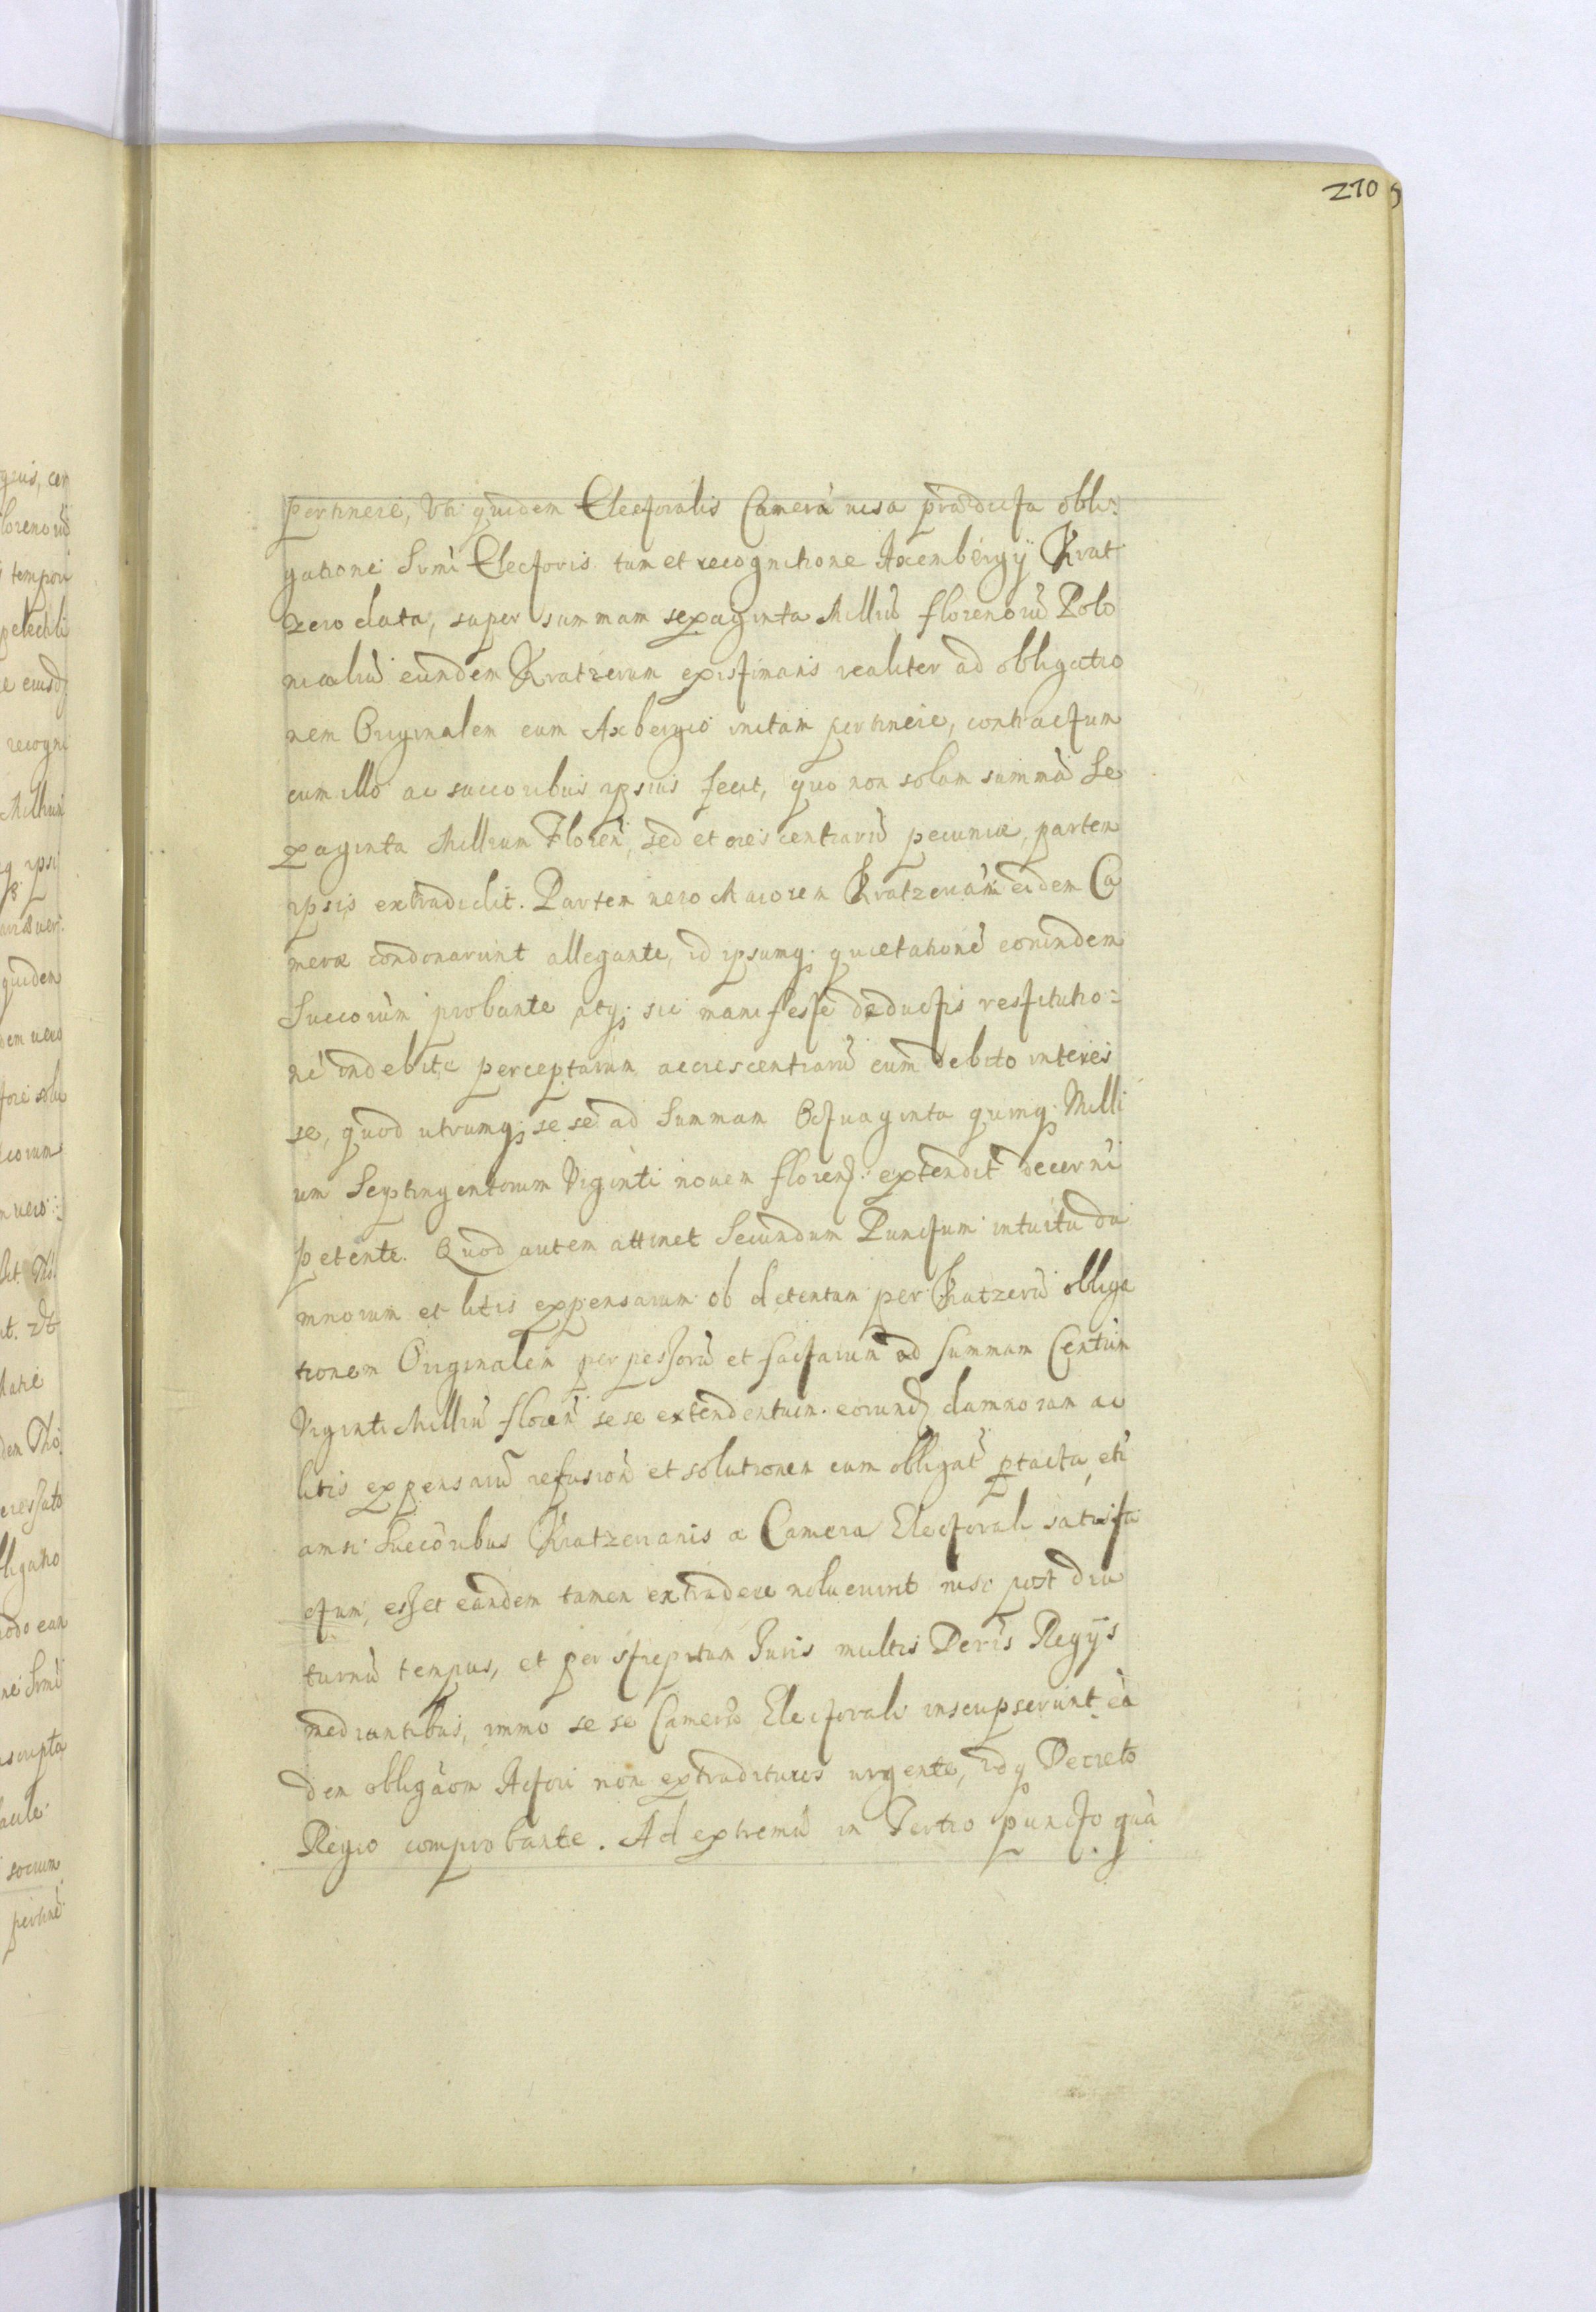 270
pertinere, Vti quidem Electoralis Camerâ visa prædicta obli:
gatione Srmi Electoris tum et recognitione Axembergÿ Krat
zero data, super summam sexaginta Milliũ florenorũ Polo
nicaliũ eundem Kratzerum existimans realiter ad obligatio
nem Originalem cum Axbergio initam pertinere, contractum
cum illo ac succoribus ipsius fecit, quo non solam summã Se
xaginta Millium Floreñ, sed et crescentiarũ pecuniæ, partem
ipsis extradidit. Partem vero Maiorem Kratzeriani eidem Ca
meræ condonarunt allegante, id ipsumq; quietationẽ eorundem
Succorum probante atq; sic manifeste deductis restitutio:
nẽ indebite perceptarum accrescentiarũ cum debito interes
se, quod utrumq; se se ad Summam Octuaginta quinq; Milli
um Septingentorum Viginti novem floren. extendit decerni
petente. Quod autem attinet Secundum Punctum intuitu da
mnorum et litis expensarum ob detentam per Kratzerũ obliga
tionem Originalem perpessorũ et factarum ad summam Centum
Viginti Milliũ floreñ se se extendentium. eorund. damnorum ac
litis expensarũ refusioñ et solutionem cum obligat ptacta, eti
amsi Succoribus Kratzerianis a Camera Electorali satisfa
ctum, esset eandem tamen extradere noluerint nisi post diu
turnũ tempus, et per strepitum Juris multis Decris Regÿs
mediantibus, immo se se Cameræ Electorali inscripserunt eã
dem obligaom Actori non extradituros urgente, idq Decreto
Regio comprobante. Ad extremũ in Tertio puncto quà